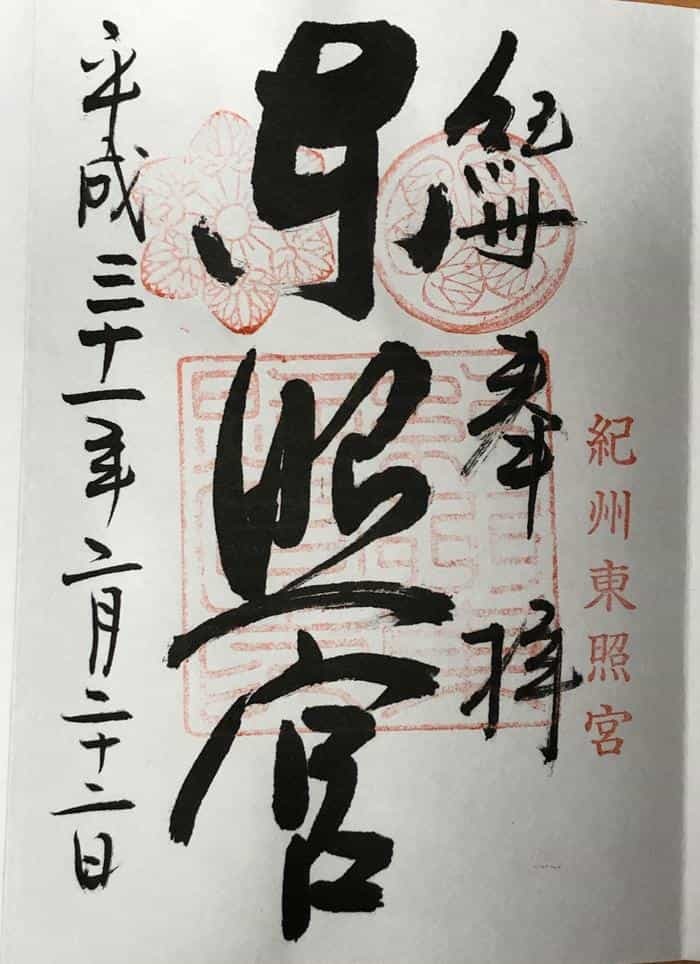 紀州東照宮
奉拝
東照宮
平成三十一年二月二十二日